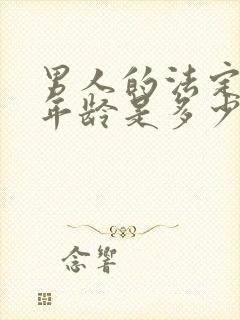 男人的法定
年龄是多少
念響